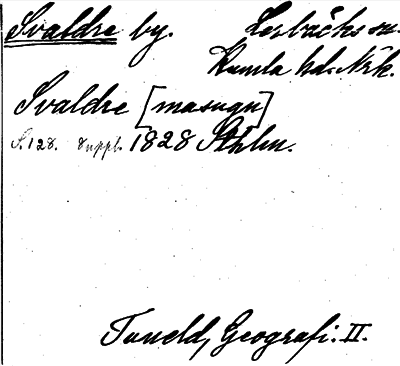 Svaldre by. Lerbäcks sn.
Kumla hd. Nrk.
Svaldre [masugn]
S. 128. Suppl. 1828 Sthlm.
Tuneld, Geografi. II.